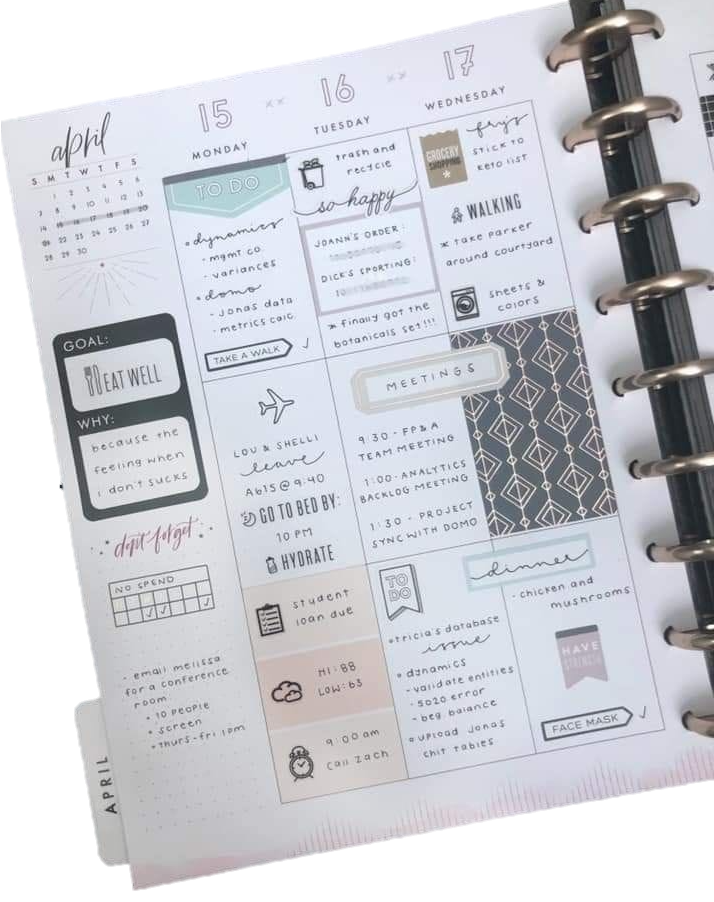 april
S M T W T F S
1 2 3 4 5 6
7 8 9 10 11 12 13
14 15 16 17 18 19 20
21 22 23 24 25 26 27
28 29 30
GOAL:
EAT WELL
WHY:
because the
feeling when
i don't sucks
don't forget
NO SPEND
• email melissa
for a conference
room
• 10 people
• screen
• Thurs-Fri 1pm
APRIL
15
MONDAY
TO DO
• dynamics
- mgmt co.
- variances
• domo
- Jonas data
- metrics calc.
TAKE A WALK ✓
LOU & SHELLI
leave
A615 @ 9:40
GO TO BED BY:
10 PM
HYDRATE
student
loan due
HI: 88
LOW: 63
9:00 am
Call Zach
16
TUESDAY
trash and
recycle
so happy
JOANN'S ORDER:
DICK'S SPORTING:
* finally got the
botanicals set!!!
MEETINGS
9:30 - FP&A
TEAM MEETING
1:00 - ANALYTICS
BACKLOG MEETING
1:30 - PROJECT
SYNC WITH DOMO
TO
DO
• tricia's database
issue
• dynamics
- validate entities
- 5020 error
- beg. balance
• upload Jonas
chit tables
17
WEDNESDAY
GROCERY
SHOPPING
fry's
STICK TO
KETO LIST
WALKING
* take parker
around courtyard
sheets &
colors
dinner
• chicken and
mushrooms
HAVE
STRENGTH
FACE MASK ✓